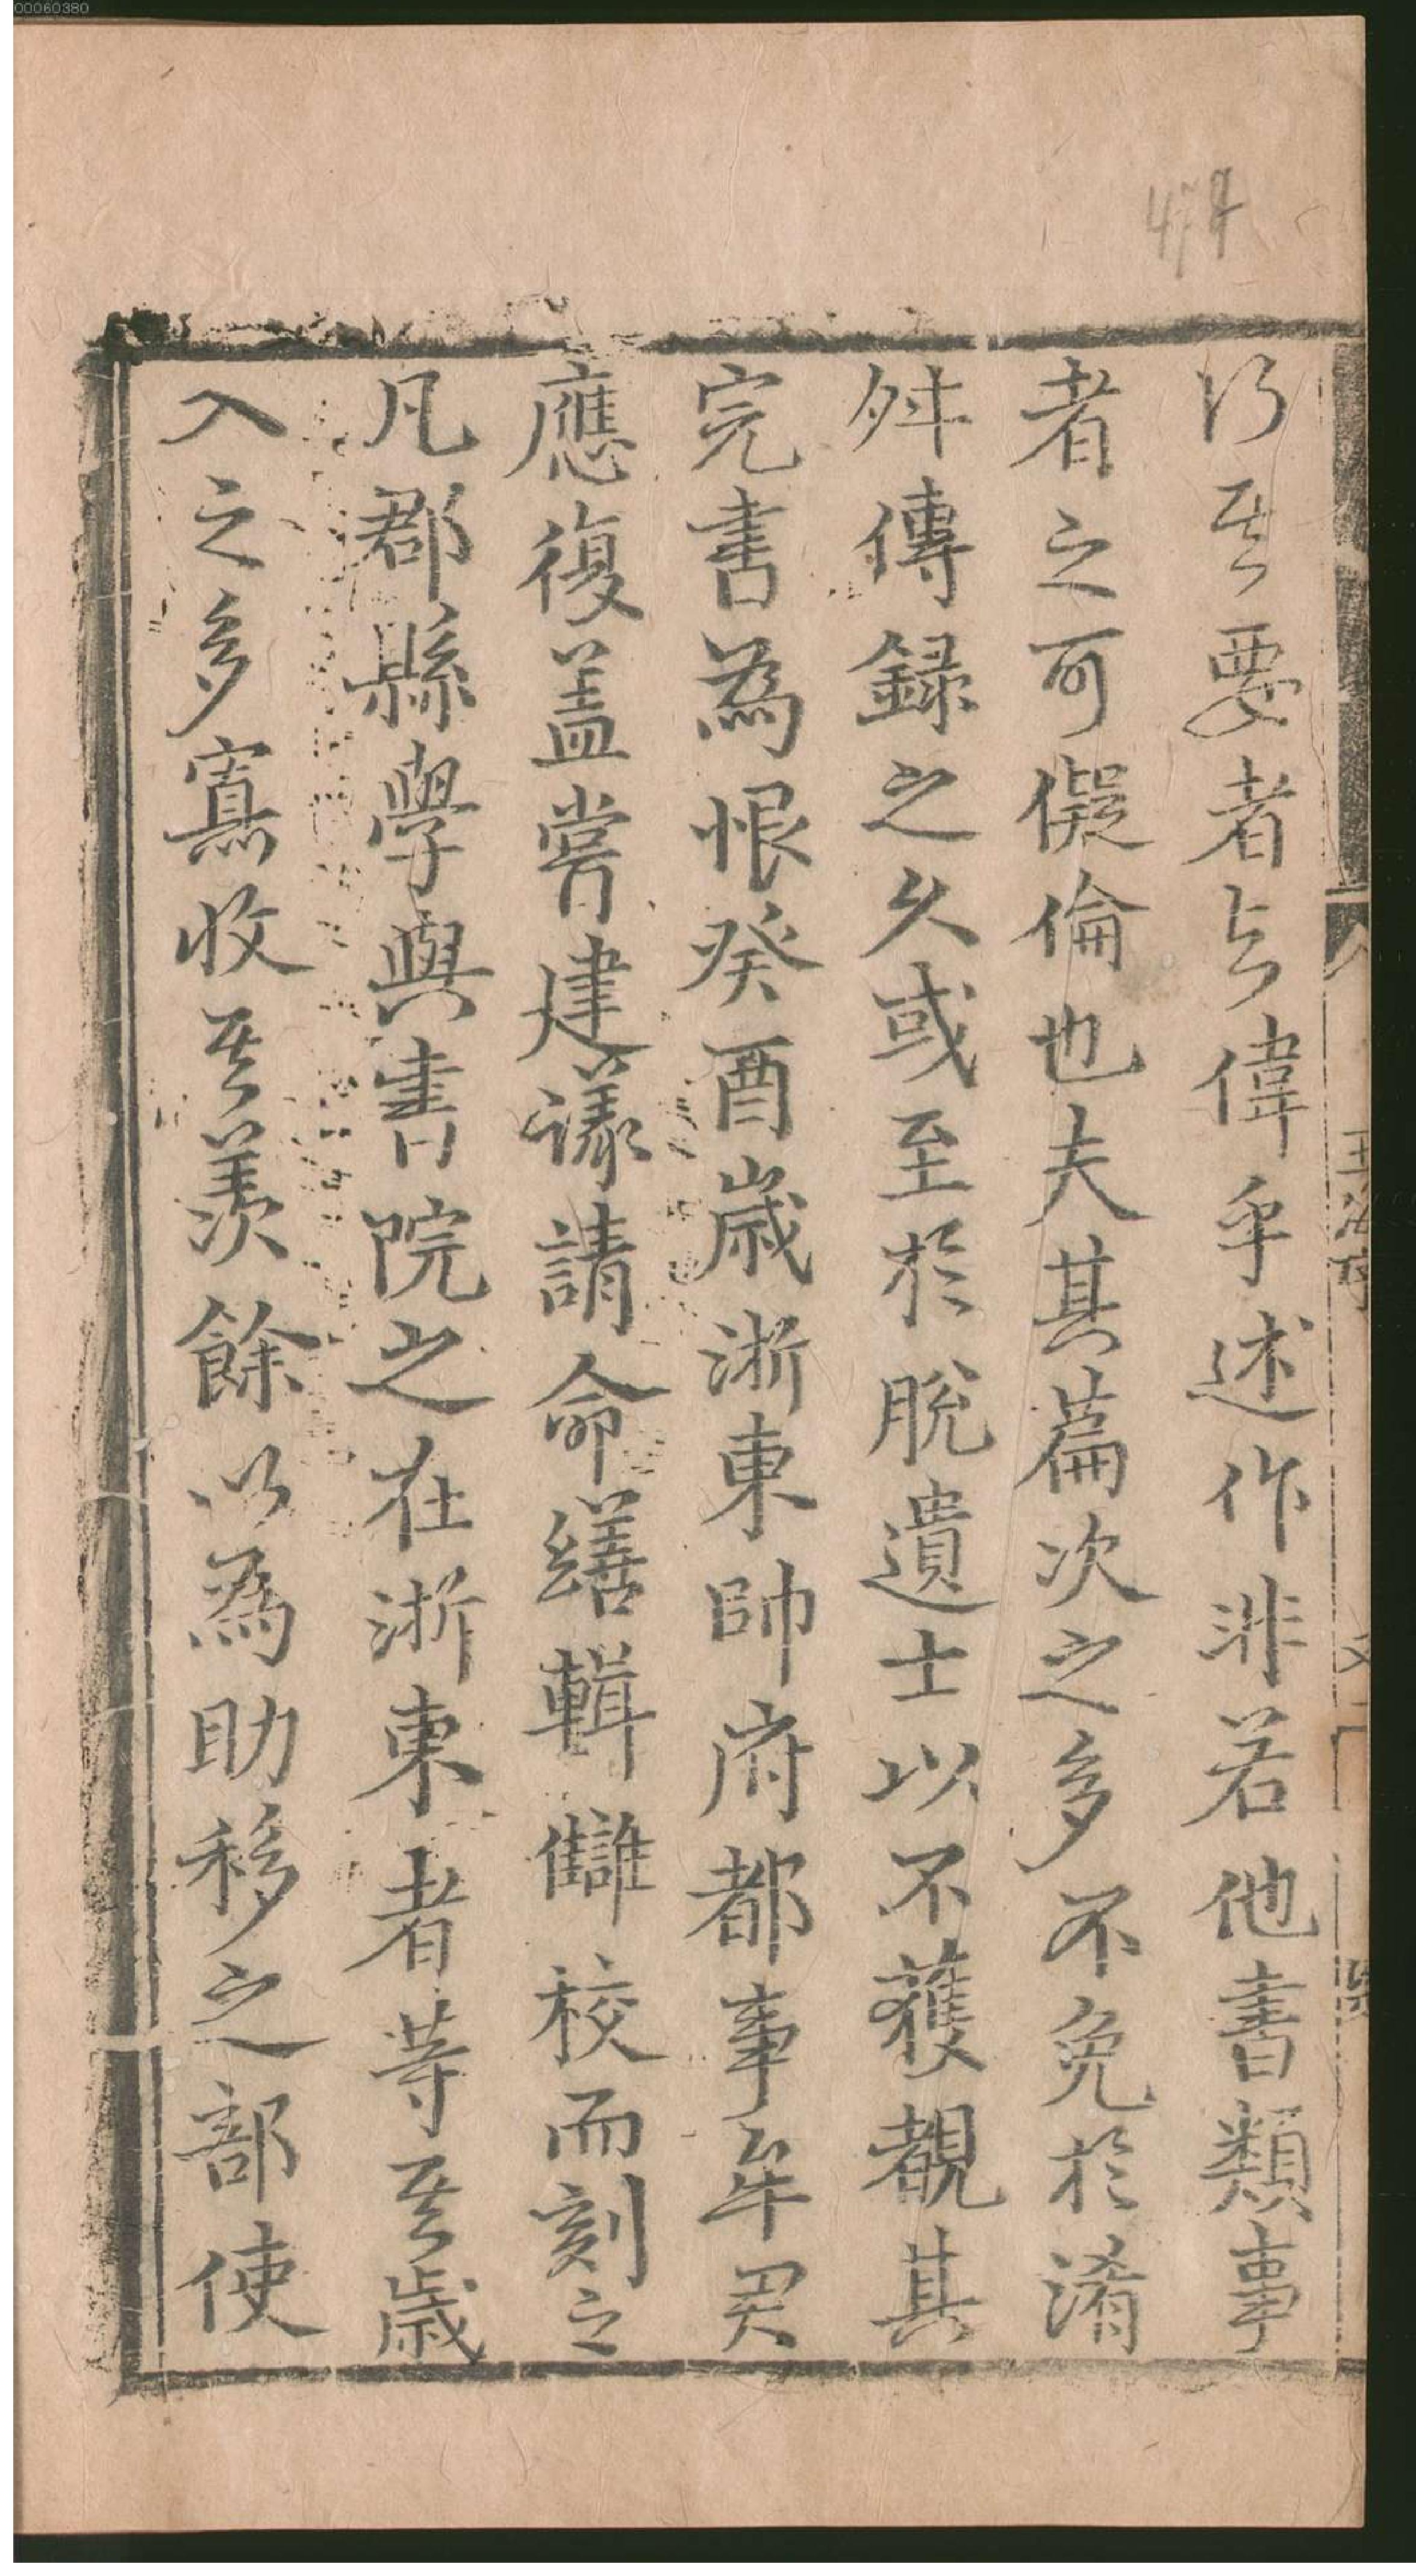 得其要者与偉乎述作非若他書類事
者之可儗倫也夫其萹次之多不免於淆
舛傳録之久或至於脫遺士以不獲覩其
完書為恨癸酉歲浙東帥府都事牟君
應復盖嘗建議請命繕輯讎校而刻之
凡郡縣學與書院之在浙東者等其歲
入之多寡收其羡餘以為助移之部使
玉海序
00060380